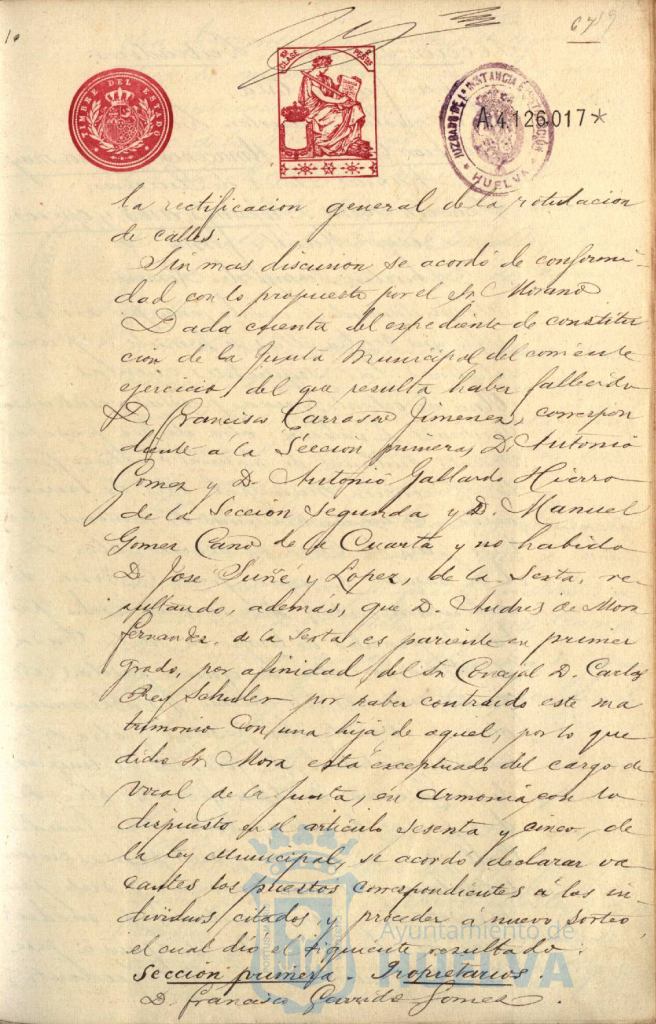 TIMBRE DEL ESTADO
CLASE PESETAS
JUZGADO DE 1ª INSTANCIA HUELVA
A4.126.017*
la rectificacion general de la rotulacion
de calles.
Sin mas discusion se acordó de conformi-
dad con lo propuesto por el Sr Morano
Dada cuenta del expediente de constitu
cion de la Junta Municipal del corriente
ejercicio, del que resulta haber fallecido
D. Francisco Carrasco Jimenez, correspon
diente á la Seccion primera, D. Antonio
Gomez y D. Antonio Gallardo Hierro
de la Seccion Segunda y D. Manuel
Gomez Cano de la Cuarta y no habido
D. José Suñé y Lopez, de la Sexta, re-
sultando, además, que D. Andres de Mora
Fernandez, de la Sexta, es pariente en primer
grado, por afinidad, del Sr Concejal D. Carlos
Rey Schuler por haber contraido este ma
trimonio con una hija de aquel, por lo que
dicho Sr Mora está exceptuado del cargo de
vocal de la Junta, en armonia con lo
dispuesto en el artículo sesenta y cinco, de
la ley Municipal, se acordó declarar va
cantes los puestos correspondientes á los in-
dividuos citados y proceder á nuevo sorteo,
el cual dió el siguiente resultado.
Seccion primera. Propietarios.
D. Francisco Garrido Gomez.
Ayuntamiento de
HUELVA